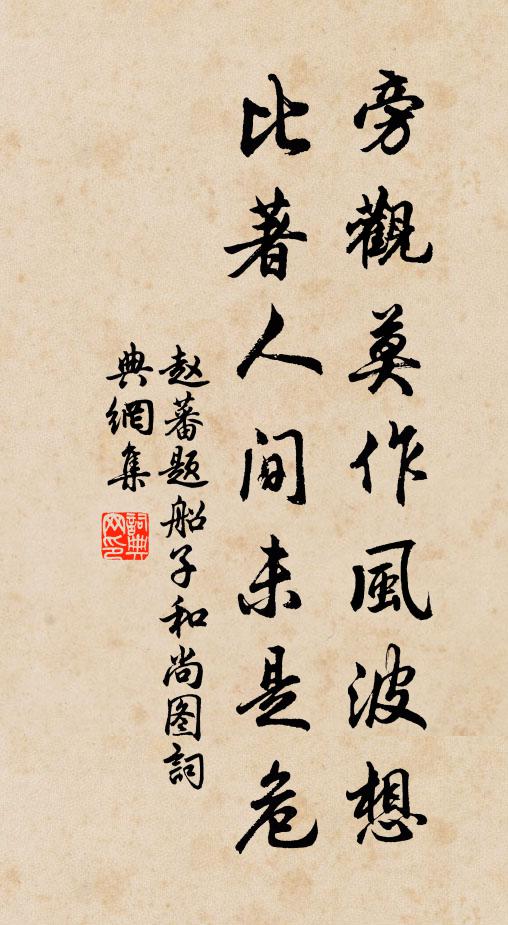 旁觀莫作風波想
比著人间未是危
赵蕃题船子和尚图詞
典網集
詞典
网印